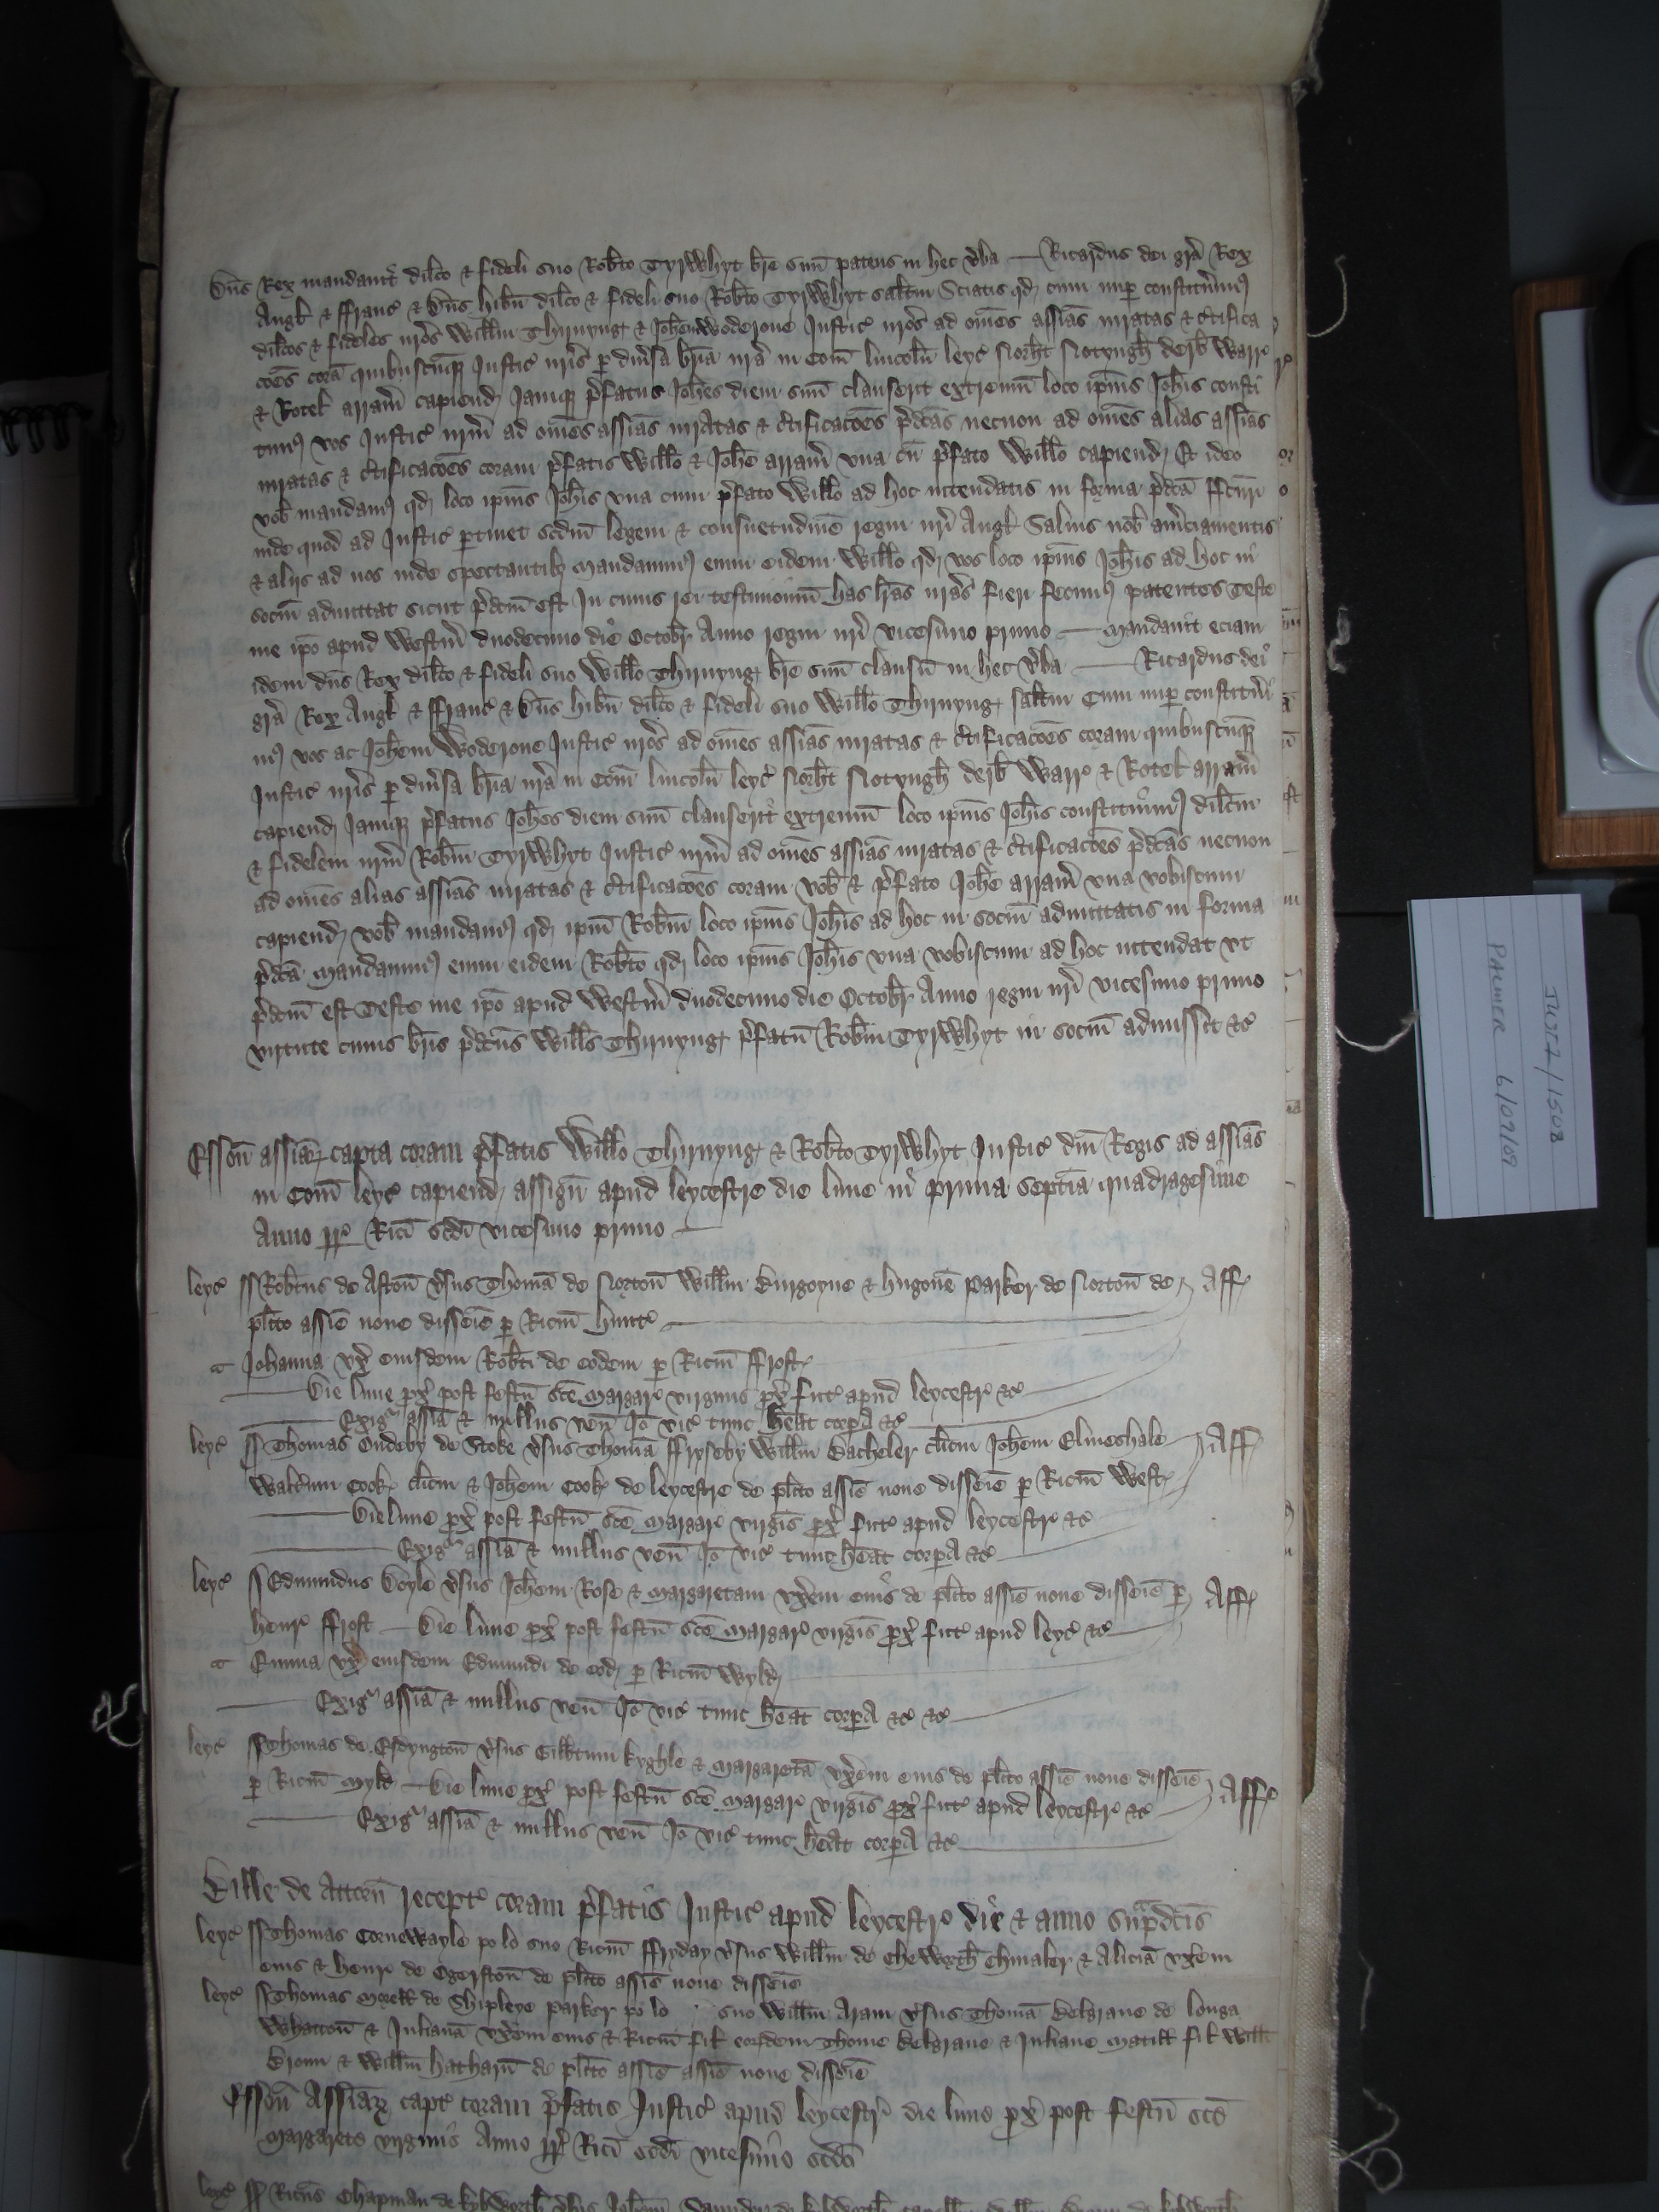 Dns Rex mandavit dilco & fideli suo Robto Tyrwhyt bre suu patens in hec vba — Ricardus dei gra Rex
Angl & Franc & Dns hibn dilco & fideli suo Robto Tyrwhyt saltm Sciatis qd cum nup constituim9
dilcos & fideles nros Willm Thirnyng & Johem Woderone Justic nros ad omes assias iuratas & ctifica
coes cora quibuscumq Justic nris p diusa bria nra in Com Lincoln Leyc Norht Notyngh Derb Warr
& Rotel arram capiend Jamq pfatus Johes diem suu clauserit extremu loco ipius Johis consti
tuim9 vos Justic nrm ad omes assias iuratas & ctificacoes pdcas necnon ad omes alias assias
iuratas & ctificacoes coram pfatis Willo & Johe arram vna cu pfato Willo capiend Et ideo
vob mandam9 qd loco ipius Johis vna cum pfato Willo ad hoc intendatis in forma pdca Fcuri
inde quod ad Justic ptinet scdm legem & consuetudine regni nri Angl Saluis nob amciamentis
& aliis ad nos inde spectantib Mandauim9 enim eidem Willo qd vos loco ipius Johis ad hoc in
sociu admittat sicut pdcm est In cuius rei testimoniu has lras nras fieri fecim9 patentes Teste
me ipo apud Westm duodecimo die Octobr Anno regni nri vicesimo primo — Mandauit eciam
idem dns Rex dilco & fideli suo Willo Thirnyng bre suu clausu in hec vba — Ricardus dei
gra Rex Angl & Franc & Dns hibn dilco & fideli suo Willo Thirnyng saltm Cum nup constitueri
m9 vos ac Johem Woderone Justic nros ad omes assias iuratas & ctificacoes coram quibuscumq
Justic nris p diusa bria nra in Com Lincoln Leyc Norht Notyngh Derb Warr & Rotel arram
capiend Jamq pfatus Johes diem suu clauserit extremu loco ipius Johis constituim9 dilcm
& fidelem nrm Robtm Tyrwhyt Justic nrm ad omes assias iuratas & ctificacoes pdcas necnon
ad omes alias assias iuratas & ctificacoes coram vob & pfato Johe arram vna vobiscum
capiend vob mandam9 qd ipm Robtm loco ipius Johis ad hoc in sociu admittatis in forma
pdca Mandauim9 enim eidem Robto qd loco ipius Johis vna vobiscum ad hoc intendat vt
pdcm est Teste me ipo apud Westm duodecimo die Octobr Anno regni nri vicesimo primo
virtute cuius bris pdcus Wills Thirnyng pfatu Robtm Tyrwhyt in sociu admissit &c
Esson assiar capta coram pfatis Willo Thirnyng & Robto Tyrwhyt Justic dni Regis ad assias
in Com Leyc capiend assign apud Leycestre die lune in prima septia quadragesime
Anno rr Rici scdi vicesimo primo
Leyc Robtus de Aston vsus Thoma de Norton Willm Burgoyne & hugone Parker de Norton de Aff
plito assie noue disseie p Ricm hunte
Johanna vx eiusdem Robti de eodem p Ricm Frost
Die lune px post festu sce Margar virginis px fut apud Leycestr &c
Exigr assia & nullus ven Jo vic tunc heat corpa &c
Leyc Thomas Ondeby de Stoke vsus Thoma Fryseby Willm Bacheler clicm Johem Elmeshale Aff
Waltum Cook clicm & Johem Cook de Leycestre de plito assie noue disseie p Ricm West
Die lune px post festu sce Margar virgis px fut apud Leycestr &c
Exigr assia & nullus ven Jo vic tunc heat corpa &c
Leyc Edmundus Doyle vsus Johem Rose & Margaretam vxem eius de plito assie noue disseie p Aff
henr Frost — Die lune px post festu sce Margar virgis px fut apud Leyc &c
Emma vx eiusdem Edmundi de eod p Ricm Wyld
Exigr assia & nullus ven Jo vic tunc heat corpa &c &c
Leyc Thomas de Esdyngton vsus Gilbtum Kyghle & Margareta vxem eius de plito assie noue disseie Aff
p Ricm Myld — Die lune px post festu sce Margar virgis px fut apud Leycestr &c
Exigr assia & nullus ven Jo vic tunc heat corpa &c
Bille de Attorn recept coram pfatis Justic apud Leycestr die & anno supdcis
Leyc Thomas Cornewayle po lo suo Ricm Fryday vsus Willm de Cheworth Chmaker & Alicia vxem
eius & henr de Egerston de plito assie noue disseie
Leyc Thomas Morell de Shipleye parker po lo suo Willm Aram vsus Thoma Belgraue de Longa
Whatton & Juliana vxem eius & Ricm fil eordem Thome Belgraue & Juliane Matill fil Willi
Broun & Willm hatharn de plito assie assie noue disseie
Esson Assiar capt coram pfatis Justic apud Leycestr die lune px post festu sce
Margarete virginis Anno rr Rici scdi vicesimo scdo
Leyc Ricus Chapman de Kybworth vsus Johem
JUST 1/1508
PALMER 6/02/09